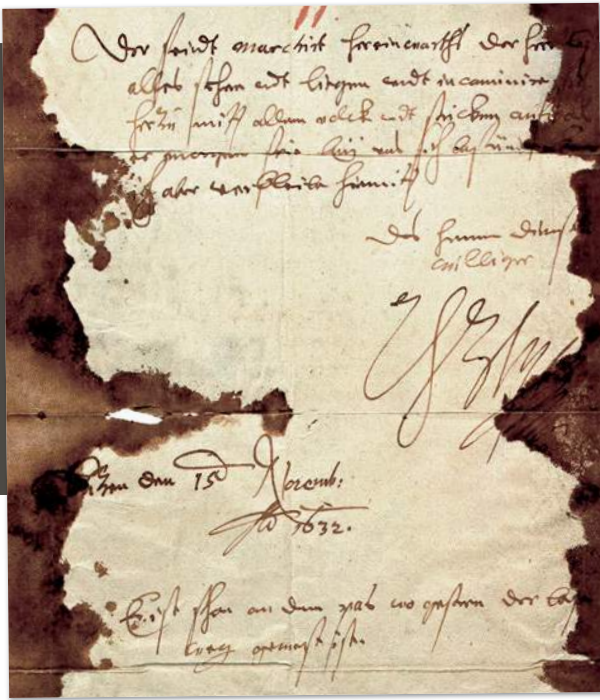 Der feindt marchirt hereinwarths der herr
alles sthen undt liegen undt incaminire
herzu mitt allem volck undt stücken auf
er morgen frie bei uns sich
ich aber verbleibe hiemitt
des herren dienst
williger
den 15 Novemb:
Ao 1632.
Er ist schon an dem pas wo gestern der
weg gewest ist.